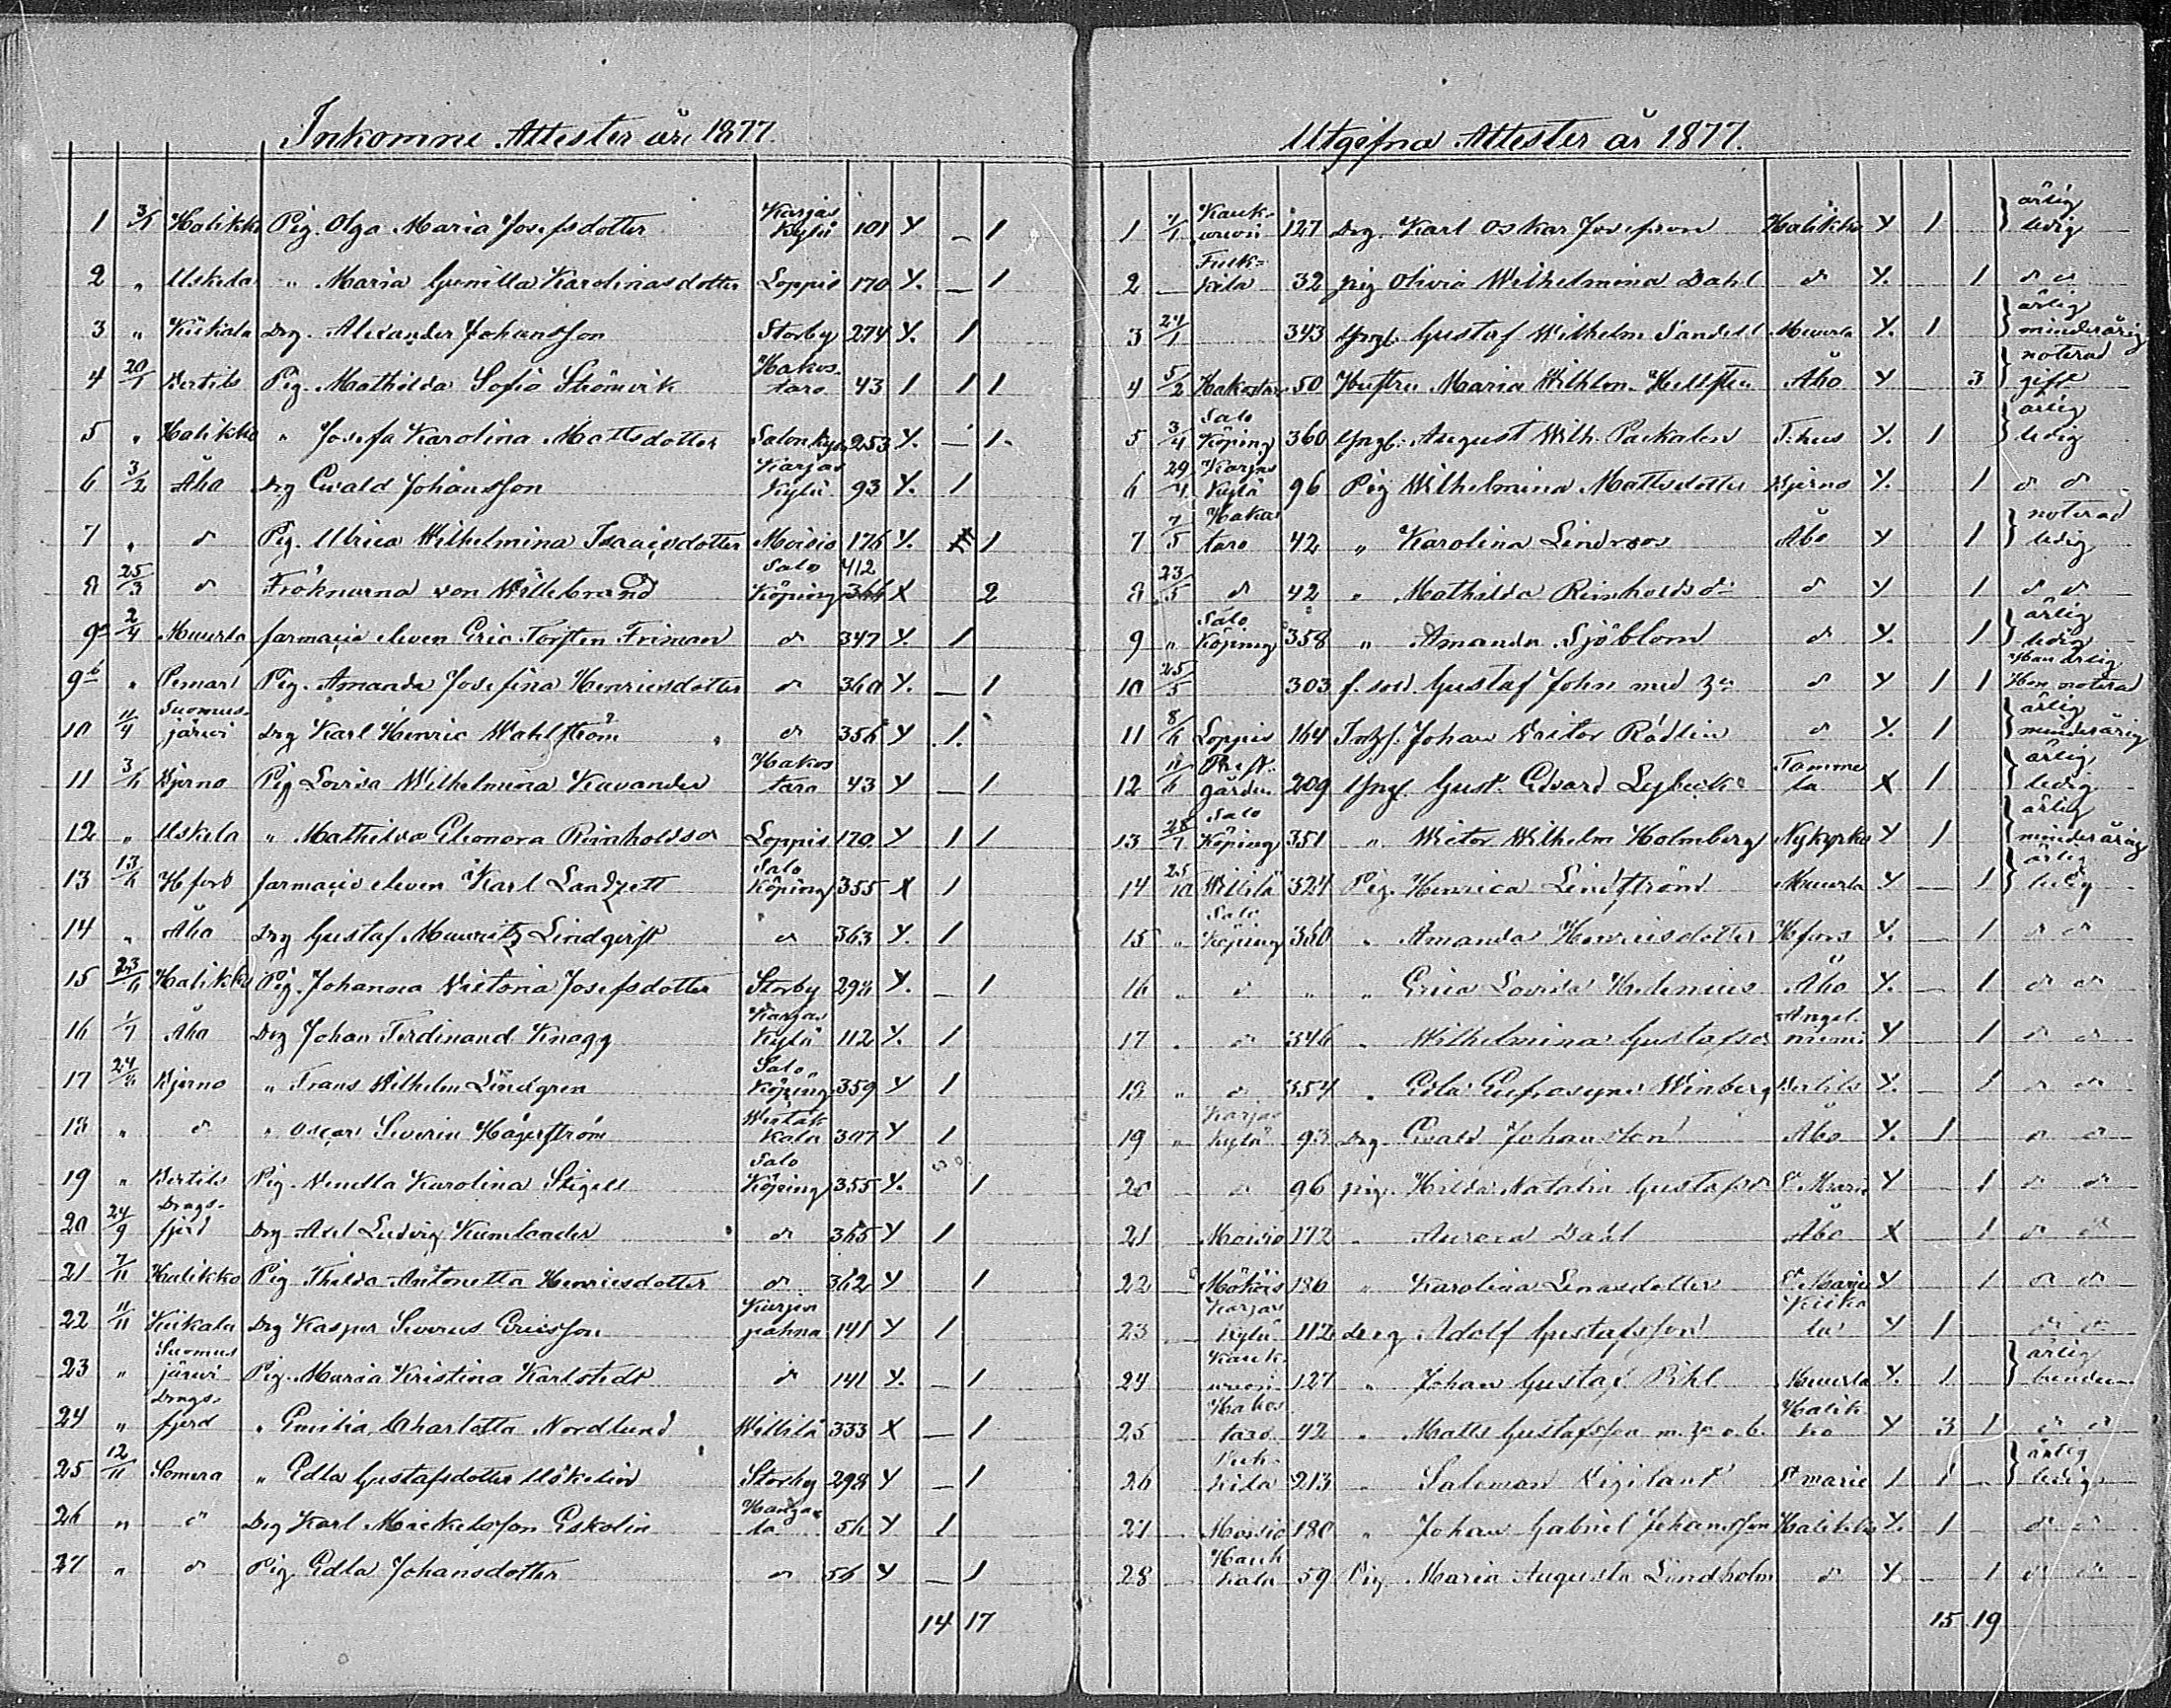 Inkomne Attester år 1877.
1 3/1 Halikko Pig. Olga Maria Josefsdotter Karjaskylä 101 Y. – 1
2 " Uskela " Maria Gunilla Karolinasdotter Loppis 170 Y. – 1
3 " Kiikala Drg. Alexander Johansson Storby 274 Y. 1
4 20/1 Bertils Pig. Mathilda Sofia Hakostaro 43 1 1 1
5 " Halikko " Josefa Karolina Mattsdotter Salonkyl 253 Y. – 1
6 3/2 Åbo Drg Evald Johansson Karjaskylä 93 Y. 1
7 " d Pig. Ulrica Wilhelmina Isacsdotter Moisio 176 Y. 1
8 25/3 d Fröknarna von Willebrand Salo Köping 412 X 2
9a 2/4 Muurla farmacie eleven Eric Torsten Friman d 347 Y. 1
9b " Pemar Pig. Amanda Josefina Henricsdotter d 360 Y. – 1
10 11/4 Suomusjärvi Drg Karl Henric Wahlström d 356 Y 1.
11 3/6 Bjerno Pig Lovisa Wilhelmina Kavander Hakostaro 43 Y – 1
12 " Uskela " Mathilda Eleonora Reinholdsd Loppis 170 Y 1 1
13 13/6 Hfors farmacie eleven Karl Landzett Salo Köping 355 X 1
14 " Åbo Drg Gustaf Mauritz Lindqvist d 363 Y. 1
15 23/6 Halikko Pig. Johanna Victoria Josefsdotter Storby 298 Y. – 1
16 1/7 Åbo Drg Johan Ferdinand Knagg Karjaskylä 112 Y. 1
17 24/8 Bjerno " Frans Wilhelm Lindgren Salo Köping 359 Y 1
18 " d " Oscar Severin Hägerström 307 Y 1
19 " Bertils Pig. Karolina Stigell Salo Köping 355 Y. 1
20 24/9 Dragsfjerd Drg Axel Ludvig Kumlander d 365 Y 1
21 7/11 Halikko Pig Thilda Antonetta Henricsdotter d 362 Y 1
22 11/11 Kiikala Drg Kasper Severus Ericsson Kurjenpahna 141 Y 1
23 " Suomusjärvi Pig. Maria Kristina Karlstedt d 141 Y. – 1
24 " Dragsfjerd " Emilia Charlotta Nordlund Willilä 333 X – 1
25 12/11 Somero " Edla Gustafsdotter Storby 298 Y – 1
26 " d Drg Karl Mickelsson Eskolin 56 Y 1
27 " d Pig Edla Johansdotter d 56 Y – 1
14 17
Utgifna Attester år 1877.
1 7/1 Kaukvuori 127 Drg. Karl Oskar Josefsson Halikko Y 1 ärlig ledig
2 – 32 pig Olivia Wilhelmina Dahl d Y. 1 d d
3 24/1 343 Yngl. Gustaf Wilhelm Sandell Muurla Y. 1 ärlig minderårig
4 5/2 Hakostaro 50 Hustru Maria Wilhlm. Hellsten Åbo Y 3 noterad gift
5 3/4 Salo Köping 360 Yngl. August Wilh. Packalen T.hus Y. 1 ärlig ledig
6 29/4 Karjaskylä 96 Pig Wilhelmina Mattsdotter Bjerno Y. 1 d d
7 7/5 Hakostaro 42 " Karolina Lindroos Åbo Y 1 noterad ledig
8 23/5 d 42 " Mathilda Reinholdsd d Y 1 d d
9 " Salo Köping 358 " Amanda Sjöblom d Y. 1 ärlig ledig
10 25/5 303 f. sold Gustaf John med d Y 1 1 Han ärlig Hon noterad
11 8/6 Loppis 164 Johan Victor Rådlin d Y. 1 ärlig minderårig
12 11/6 Prestgården 209 Yngl. Gust. Edvard Lybeck Tammela X 1 ärlig ledig
13 28/7 Salo Köping 351 " Victor Wilhelm Holmberg Nykyrko Y 1 ärlig minderårig
14 25/10 Willilä 324 Pig. Henrica Lindström Muurla Y – 1 ärlig ledig
15 " Salo Köping 360 " Amanda Henricsdotter Hfors Y. – 1 d d
16 " d " " Erica Lovisa Helenius Åbo Y. – 1 d d
17 " d 346 " Wilhelmina Gustafsd Angelniemi Y 1 d d
18 " d 354 " Edla Eufrosyne Winberg Bertils Y. 1 d d
19 " Karjaskylä 93 Drg Evald Johansson Åbo Y. 1 d d
20 d 96 pig. Hilda Natalia Gustafsd St Marie Y 1 d d
21 Moisio 172 " Aurora Dahl Åbo X 1 d d
22 180 " Karolina Lenasdotter St Marie Y 1 d d
23 Karjaskylä 112 Drg Adolf Gustafsson Kiikala Y 1 d d
24 Kaukvuori 127 " Johan Gustaf Pihl Muurla Y. 1 ärlig
25 Hakostaro 42 " Matts Gustafsson Halikko Y 3 1 d d
26 213 " Salomon Vigilant St marie 1 1 ärlig ledig
27 Moisio 180 " Johan Gabriel Johansson Halikko Y. 1 d d
28 59 Pig Maria Augusta Lindholm d Y. 1 d d
15 19